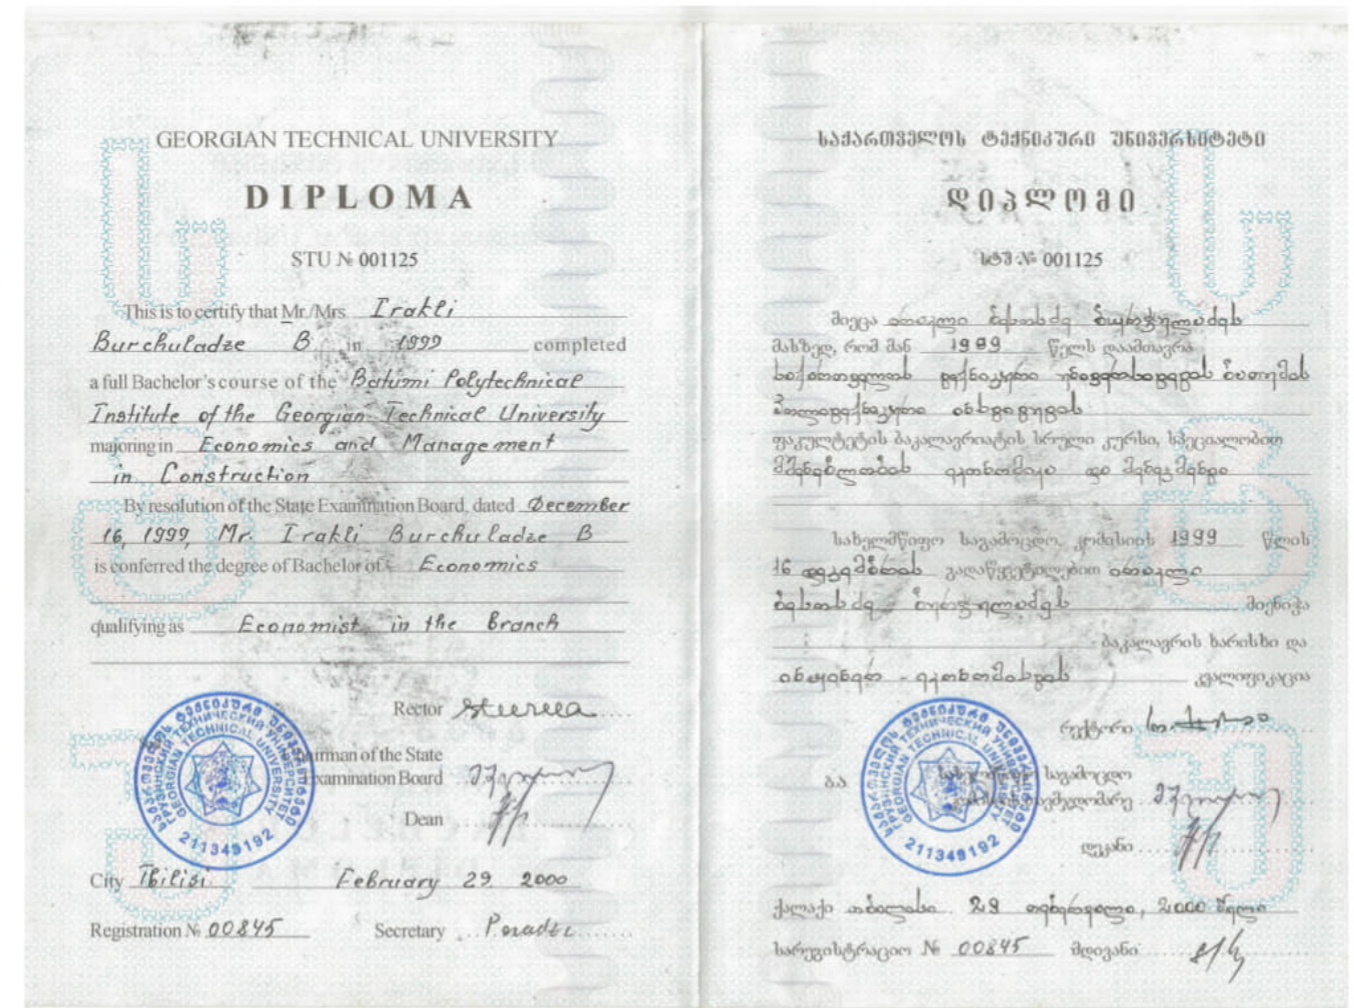 GEORGIAN TECHNICAL UNIVERSITY
DIPLOMA
STU № 001125
This is to certify that Mr./Mrs. Irakli
Burchuladze B in 1999 completed
a full Bachelor's course of the Batumi Polytechnical
Institute of the Georgian Technical University
majoring in Economics and Management
in Construction
By resolution of the State Examination Board, dated December
16, 1999, Mr. Irakli Burchuladze B
is conferred the degree of Bachelor of Economics
qualifying as Economist in the Branch
Rector
Chairman of the State
Examination Board
Dean
City Tbilisi February 29. 2000
Registration № 00845 Secretary
GEORGIAN TECHNICAL UNIVERSITY
ГРУЗИНСКИЙ ТЕХНИЧЕСКИЙ УНИВЕРСИТЕТ
საქართველოს ტექნიკური უნივერსიტეტი
211349192
საქართველოს ტექნიკური უნივერსიტეტი
დიპლომი
სტუ № 001125
მიეცა ირაკლი ბესოს ძე ბურჭულაძეს
მასზედ, რომ მან 1999 წელს დაამთავრა
საქართველოს ტექნიკური უნივერსიტეტის ბათუმის
პოლიტექნიკური ინსტიტუტის
ფაკულტეტის ბაკალავრიატის სრული კურსი, სპეციალობით
მშენებლობის ეკონომიკა და მენეჯმენტი
სახელმწიფო საგამოცდო კომისიის 1999 წლის
16 დეკემბრის გადაწყვეტილებით ირაკლი
ბესოს ძე ბურჭულაძეს მიენიჭა
ბაკალავრის ხარისხი და
ინჟინერ - ეკონომისტის კვალიფიკაცია
რექტორი
ბ.ა. სახელმწიფო საგამოცდო
კომისიის თავმჯდომარე
დეკანი
ქალაქი თბილისი 29 თებერვალი, 2000 წელი
სარეგისტრაციო № 00845 მდივანი
GEORGIAN TECHNICAL UNIVERSITY
ГРУЗИНСКИЙ ТЕХНИЧЕСКИЙ УНИВЕРСИТЕТ
საქართველოს ტექნიკური უნივერსიტეტი
211349192